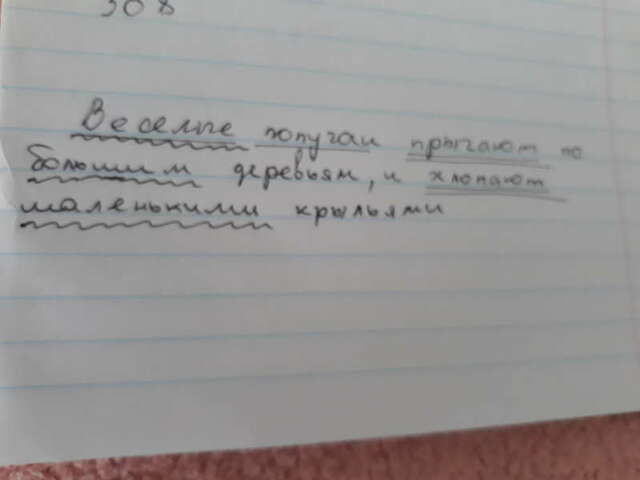 308
Веселые попугаи прыгают по
большим деревьям, и хлопают
маленькими крыльями